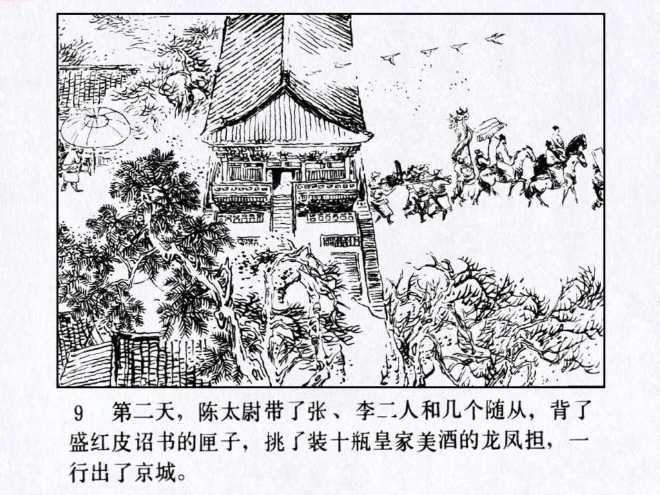 9 第二天，陈太尉带了张、李二人和几个随从，背了
盛红皮诏书的匣子，挑了装十瓶皇家美酒的龙凤担，一
行出了京城。